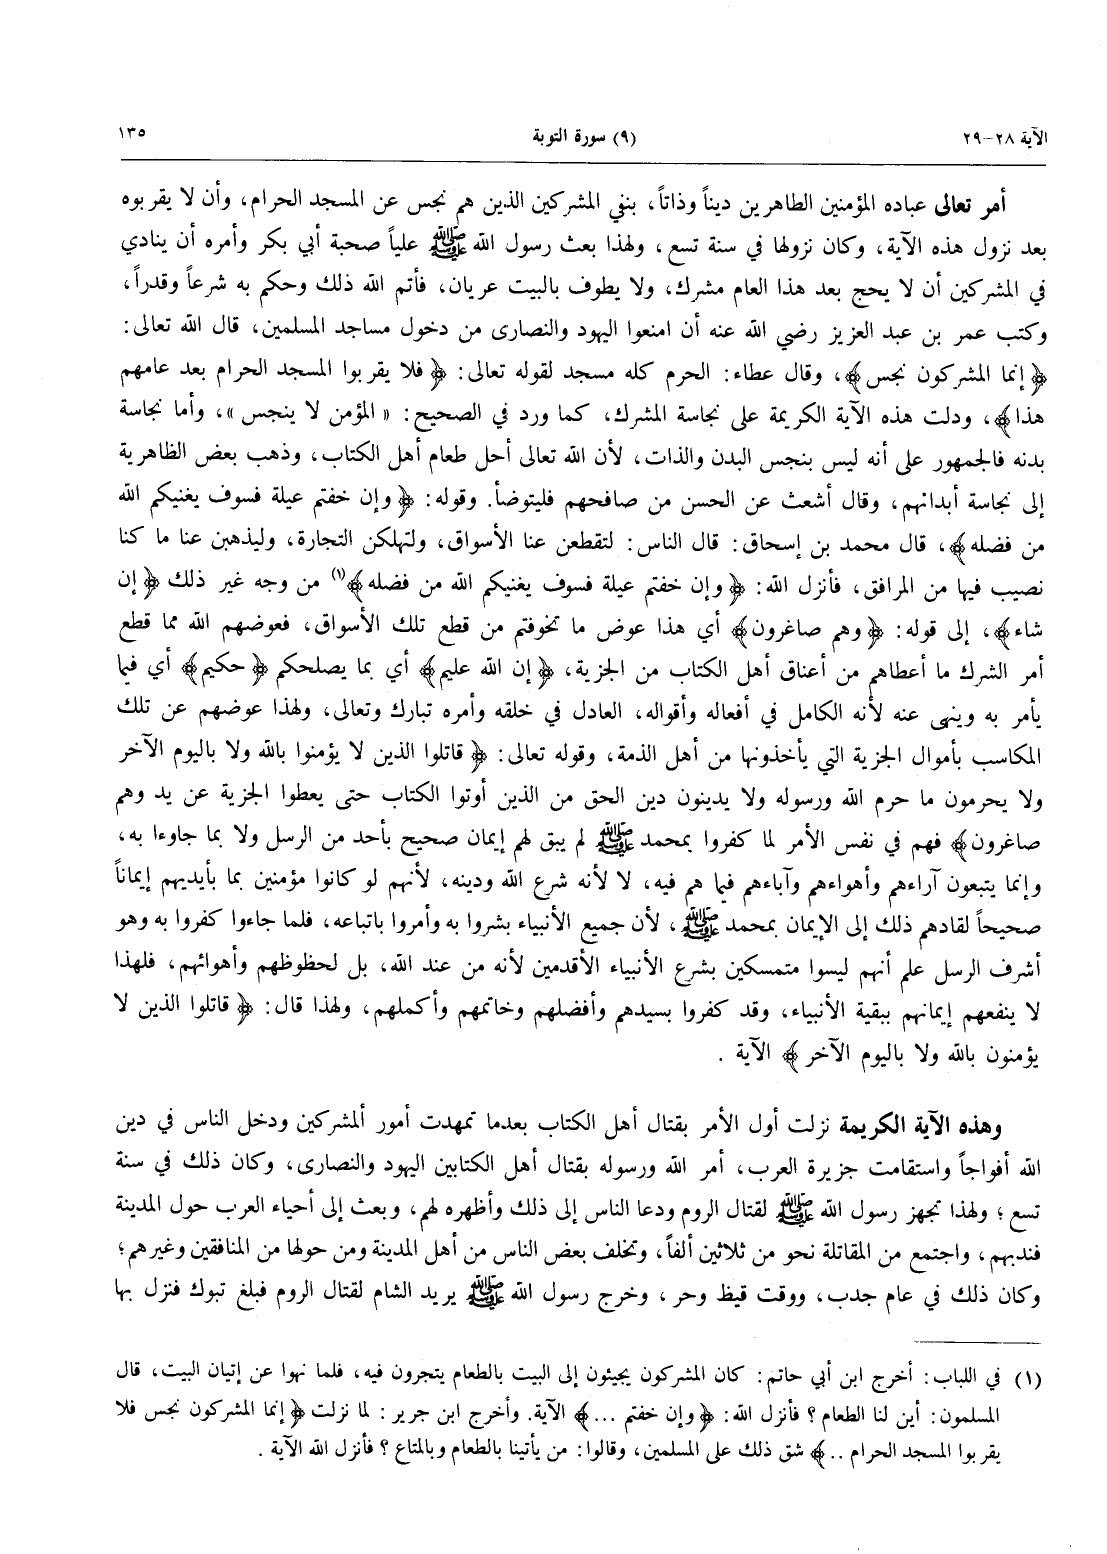 الآية ٢٨-٢٩
(٩) سورة التوبة
١٣٥
أمر تعالى عباده المؤمنين الطاهرين ديناً وذاتاً، بنفي المشركين الذين هم نجس عن المسجد الحرام، وأن لا يقربوه
بعد نزول هذه الآية، وكان نزولها في سنة تسع، ولهذا بعث رسول الله ﷺ علياً صحبة أبي بكر وأمره أن ينادي
في المشركين أن لا يحج بعد هذا العام مشرك، ولا يطوف بالبيت عريان، فأتم الله ذلك وحكم به شرعاً وقدراً،
وكتب عمر بن عبد العزيز رضي الله عنه أن امنعوا اليهود والنصارى من دخول مساجد المسلمين، قال الله تعالى:
﴿إنما المشركون نجس﴾، وقال عطاء: الحرم كله مسجد لقوله تعالى: ﴿فلا يقربوا المسجد الحرام بعد عامهم
هذا﴾، ودلت هذه الآية الكريمة على نجاسة المشرك، كما ورد في الصحيح: «المؤمن لا ينجس»، وأما نجاسة
بدنه فالجمهور على أنه ليس بنجس البدن والذات، لأن الله تعالى أحل طعام أهل الكتاب، وذهب بعض الظاهرية
إلى نجاسة أبدانهم، وقال أشعث عن الحسن من صافحهم فليتوضأ. وقوله: ﴿وإن خفتم عيلة فسوف يغنيكم الله
من فضله﴾، قال محمد بن إسحاق: قال الناس: لتقطعن عنا الأسواق، ولتهلكن التجارة، وليذهبن عنا ما كنا
نصيب فيها من المرافق، فأنزل الله: ﴿وإن خفتم عيلة فسوف يغنيكم الله من فضله﴾(١) من وجه غير ذلك ﴿إن
شاء﴾، إلى قوله: ﴿وهم صاغرون﴾ أي هذا عوض ما تخوفتم من قطع تلك الأسواق، فعوضهم الله مما قطع
أمر الشرك ما أعطاهم من أعناق أهل الكتاب من الجزية، ﴿إن الله عليم﴾ أي بما يصلحكم ﴿حكيم﴾ أي فيما
يأمر به وينهى عنه لأنه الكامل في أفعاله وأقواله، العادل في خلقه وأمره تبارك وتعالى، ولهذا عوضهم عن تلك
المكاسب بأموال الجزية التي يأخذونها من أهل الذمة، وقوله تعالى: ﴿قاتلوا الذين لا يؤمنوا بالله ولا باليوم الآخر
ولا يحرمون ما حرم الله ورسوله ولا يدينون دين الحق من الذين أوتوا الكتاب حتى يعطوا الجزية عن يد وهم
صاغرون﴾ فهم في نفس الأمر لما كفروا بمحمد ﷺ لم يبق لهم إيمان صحيح بأحد من الرسل ولا بما جاءوا به،
وإنما يتبعون آراءهم وأهواءهم وآباءهم فيما هم فيه، لا لأنه شرع الله ودينه، لأنهم لو كانوا مؤمنين بما بأيديهم إيماناً
صحيحاً لقادهم ذلك إلى الإيمان بمحمد ﷺ، لأن جميع الأنبياء بشروا به وأمروا باتباعه، فلما جاءوا كفروا به وهو
أشرف الرسل علم أنهم ليسوا متمسكين بشرع الأنبياء الأقدمين لأنه من عند الله، بل لحظوظهم وأهوائهم، فلهذا
لا ينفعهم إيمانهم ببقية الأنبياء، وقد كفروا بسيدهم وأفضلهم وخاتمهم وأكملهم، ولهذا قال: ﴿قاتلوا الذين لا
يؤمنون بالله ولا باليوم الآخر﴾ الآية .
وهذه الآية الكريمة نزلت أول الأمر بقتال أهل الكتاب بعدما تمهدت أمور ألمشركين ودخل الناس في دين
الله أفواجاً واستقامت جزيرة العرب، أمر الله ورسوله بقتال أهل الكتابين اليهود والنصارى، وكان ذلك في سنة
تسع؛ ولهذا تجهز رسول الله ﷺ لقتال الروم ودعا الناس إلى ذلك وأظهره لهم، وبعث إلى أحياء العرب حول المدينة
فندبهم، واجتمع من المقاتلة نحو من ثلاثين ألفاً، وتخلف بعض الناس من أهل المدينة ومن حولها من المنافقين وغيرهم؛
وكان ذلك في عام جدب، ووقت قيظ وحر، وخرج رسول الله ﷺ يريد الشام لقتال الروم فبلغ تبوك فنزل بها
(١) في اللباب: أخرج ابن أبي حاتم: كان المشركون يجيئون إلى البيت بالطعام يتجرون فيه، فلما نهوا عن إتيان البيت، قال
المسلمون: أين لنا الطعام؟ فأنزل الله: ﴿وإن خفتم ...﴾ الآية. وأخرج ابن جرير: لما نزلت ﴿إنما المشركون نجس فلا
يقربوا المسجد الحرام ..﴾ شق ذلك على المسلمين، وقالوا: من يأتينا بالطعام وبالمتاع؟ فأنزل الله الآية .